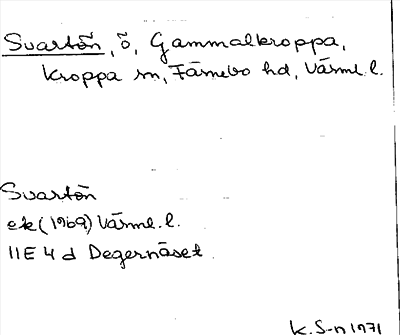 Svartön, ö, Gammalkroppa,
Kroppa sn, Färnebo hd, Värml. l.
Svartön
ek (1969) Värml. l.
11E 4 d Degernäset
K. S-n 1971